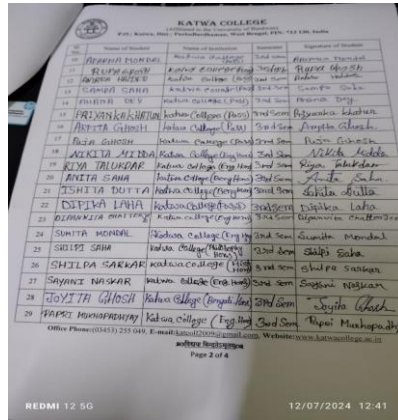 KATWA COLLEGE
(Affiliated to the University of Burdwan)
P.O.: Katwa, Dist.: Purba Bardhaman, West Bengal, PIN: 713 130, India
Name of Student Name of Institution Semester Signature of Student
10 APARNA MONDAL Katwa College 3rd Sem Aparna Mondal
11 RUPA GHOSH Katwa College 3rd Sem Rupa Ghosh
12 Katwa College (Pass) 3rd Sem
13 SAMPA SAHA Katwa College (Pass) 3rd Sem Sampa Saha
14 DEY Katwa College (Pass) 3rd Sem Dey
15 PRIYANKA KHATUN Katwa College (Pass) 3rd Sem Priyanka Khatun
16 ARPITA GHOSH Katwa College (Pass) 3rd Sem Arpita Ghosh
17 PUJA GHOSH Katwa College (Pass) 3rd Sem Puja Ghosh
18 NIKITA MIDDA Katwa College (Eng Hons) 3rd Sem Nikita Midda
19 RIYA TALUKDAR Katwa College (Eng Hons) 3rd Sem Riya Talukdar
20 ANITA SAHA Katwa College (Beng Hons) 3rd Sem Anita Saha
21 ISHITA DUTTA Katwa College (Beng Hons) 3rd Sem Ishita Dutta
22 DIPIKA LAHA Katwa College (Pass) 3rd Sem Dipika Laha
23 Katwa College (Eng Hons) 3rd Sem
24 SUMITA MONDAL Katwa College (Eng Hons) 3rd Sem Sumita Mondal
25 SHILPI SAHA Katwa College (Philosophy Hons) 3rd Sem Shilpi Saha
26 SHILPA SARKAR Katwa College 3rd Sem Shilpa Sarkar
27 SAYANI NASKAR Katwa College (Eng Hons) 3rd Sem Sayani Naskar
28 JOYITA GHOSH Katwa College (Bengali Hons) 3rd Sem Joyita Ghosh
29 PAPRI MUKHOPADHYAY Katwa College (Eng Hons) 3rd Sem Papri Mukhopadhyay
Office Phone: (03453) 255 049, E-mail: katcoll2009@gmail.com, Website: www.katwacollege.ac.in
Page 2 of 4
REDMI 12 5G 12/07/2024 12:41